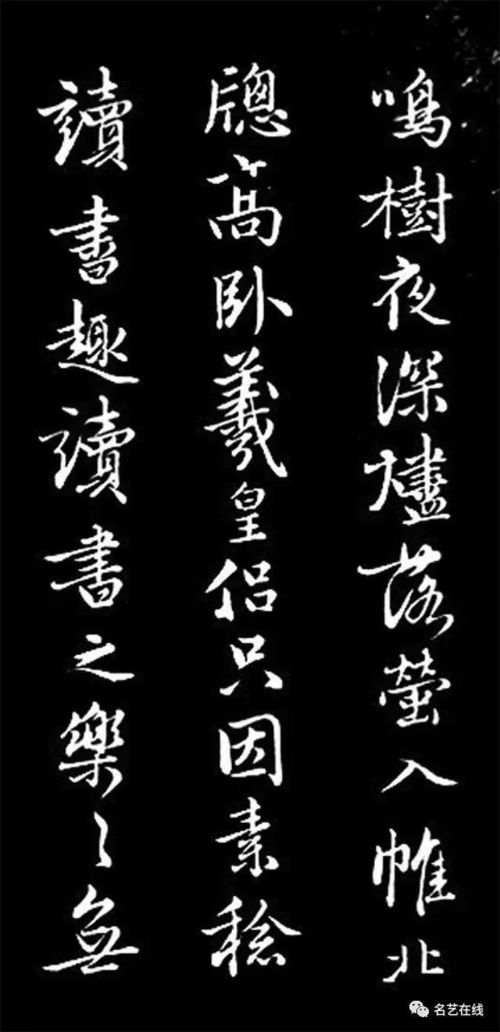 鳴樹夜深燼落螢入帷北
牎高卧羲皇侣只因素稔
讀書趣讀書之樂〻無
名艺在线